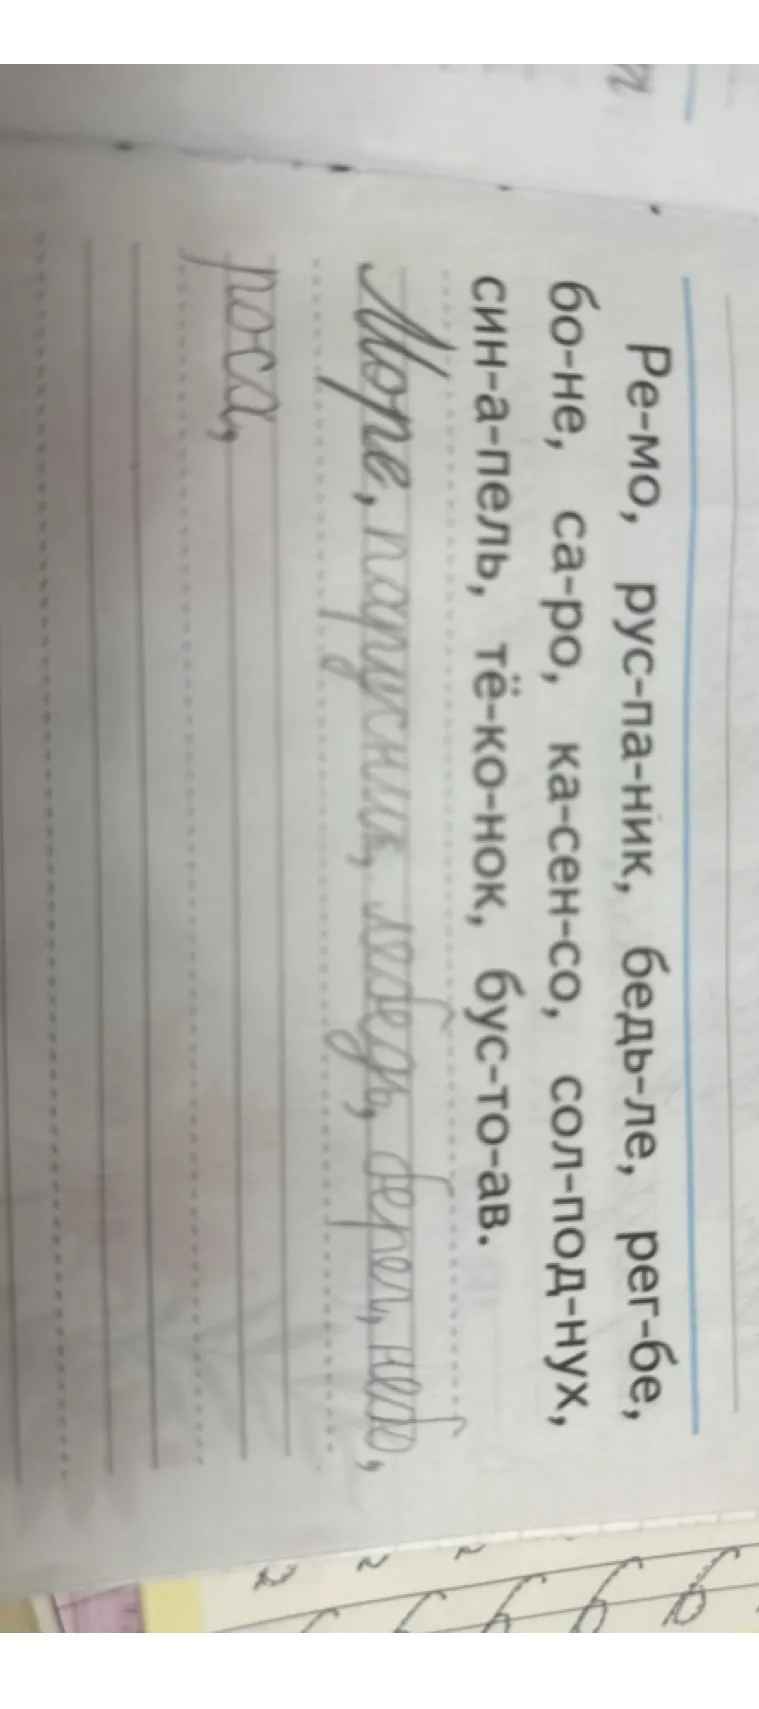 Ре-мо, рус-па-ник, бедь-ле, рег-бе,
бо-не, са-ро, ка-сен-со, сол-под-нух,
син-а-пель, тё-ко-нок, бус-то-ав.
Море, парусник, лебедь, берег, небо,
роса,